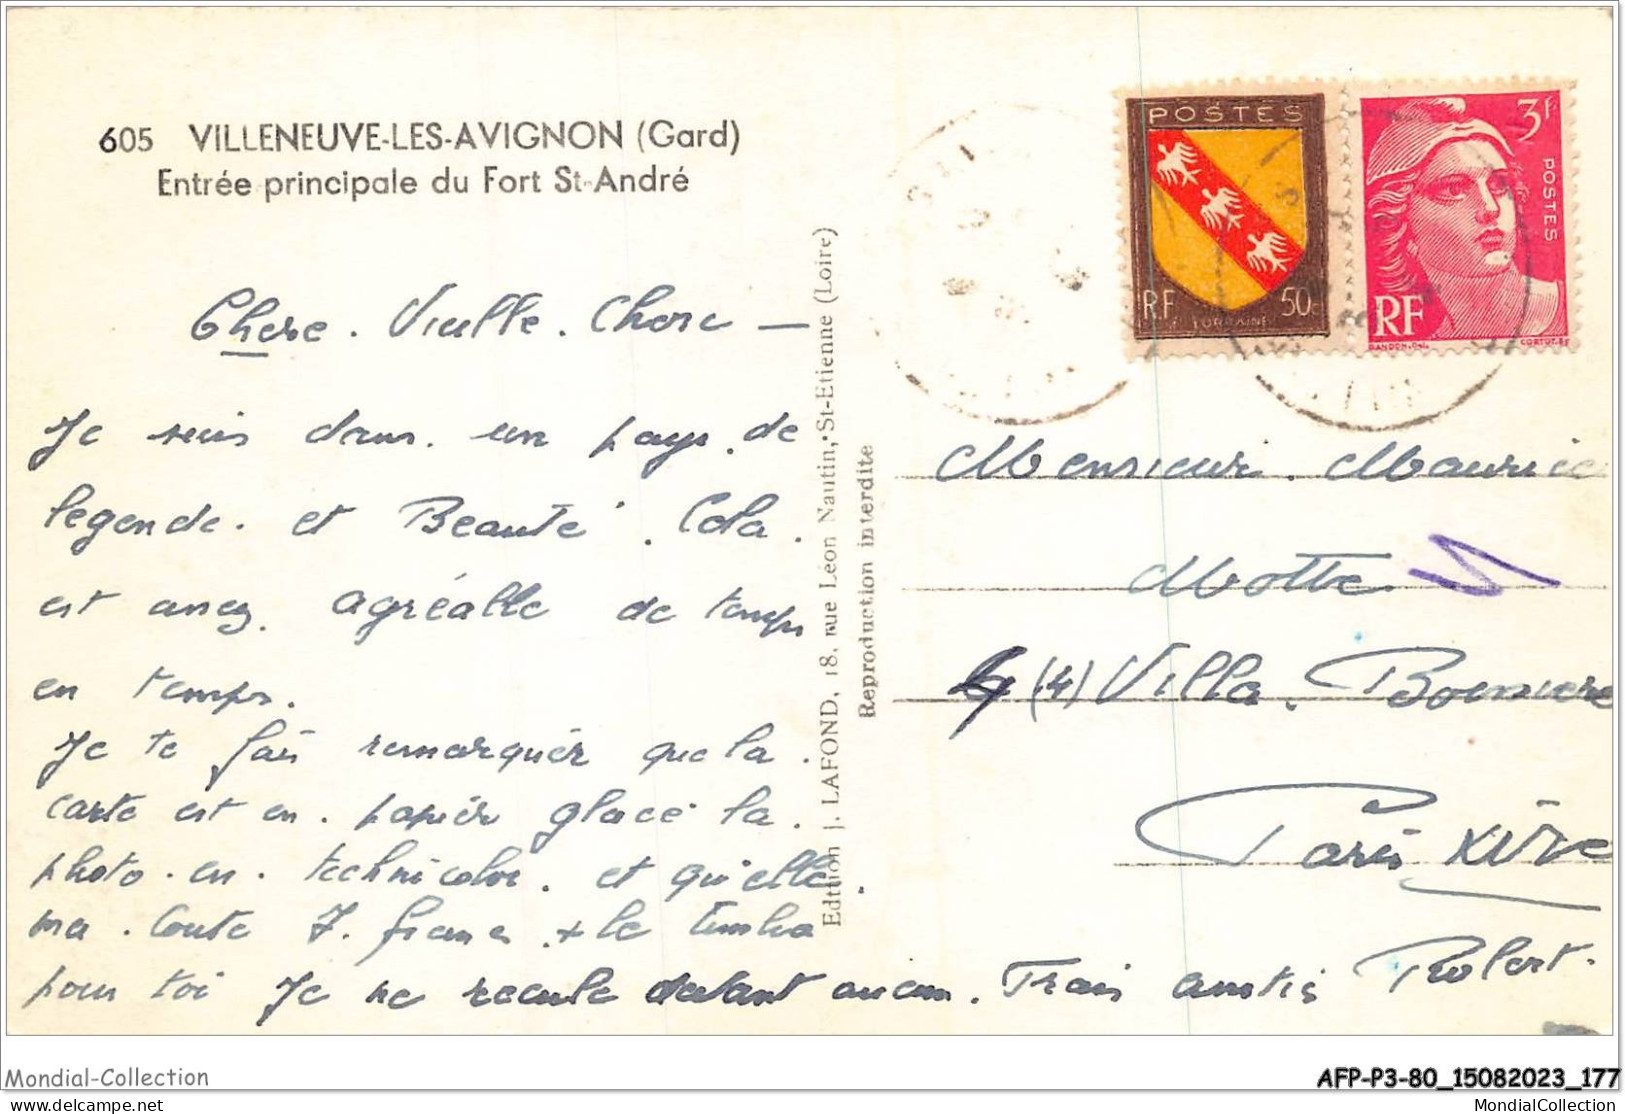 605 VILLENEUVE-LES-AVIGNON (Gard)
Entrée principale du Fort St-André
Chere. Vieille. Chose —
Je suis dans. un pays. de
legende. et Beauté. Cela.
est assez. agréable de temps
en temps.
Je te fais remarquér que la.
carte est en. papiér glacé la.
photo. en. technicolor. et qu'elle.
ma. couté 7. francs. + le timbre
pour toi Je ne recule devant aucun. Frais amitiés Robert.
Edition J. LAFOND, 18, rue Léon Nautin, St-Etienne (Loire)
Reproduction interdite
POSTES
RF
50
LORRAINE
3F
POSTES
RF
GANDON.DEL.
CORTOT.SC
Monsieur. Maurice
Motte
4 (4) Villa.
Paris XIVe
Mondial-Collection
AFP-P3-80_15082023_177
delcampe.net
MondialCollection